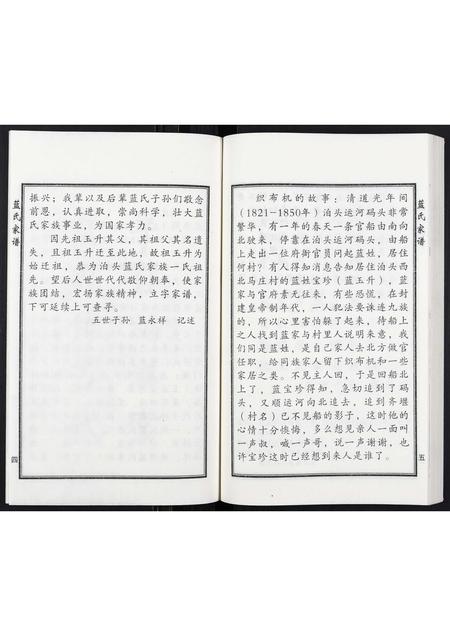 蓝氏家谱
振兴；我辈以及后辈蓝氏子孙们敬念
前恩，认真进取，崇尚科学，壮大蓝
氏家族事业，为国家孝力。
因先祖玉升其父，其祖父其名遗
失，且祖玉升迁至此地，故祖玉升为
始迁祖，恭为泊头蓝氏家族一氏祖
先。望后人世世代代敬仰朝奉，使家
族团结，宏扬家族精神，立字家谱，
下可延续上可查寻。
五世子孙 蓝永祥 记述
四
织布机的故事；清道光年间
（1821-1850年）泊头运河码头非常
繁华，有一年的春天一条官船由南向
北驶来，停靠在泊头运河码头，由船
上走出一位府衙官员问起蓝姓，居住
何村？有人得知消息告知居住泊头西
北马庄村的蓝姓宝珍（蓝玉升），蓝
家与官府素无往来，有些恐慌，在封
建皇帝制年代，一人犯法要诛连九族
的，所以心里害怕躲了起来，待船上
之人找到蓝家与村里人说明来意，我
们同是蓝姓，是自己家人去北方做官
任职，给同族家人留下织布机和一些
家居之类。不见主人回，于是回船北
上了，蓝宝珍得知，急切追到了码
头，又顺运河向北追去，追到齐堰
（村名）已不见船的影子，这时他的
心情十分懊悔，多么想见亲人一面叫
一声叔，喊一声哥，说一声谢谢，也
许宝珍这时已经想到来人是谁了。
蓝氏家谱
五